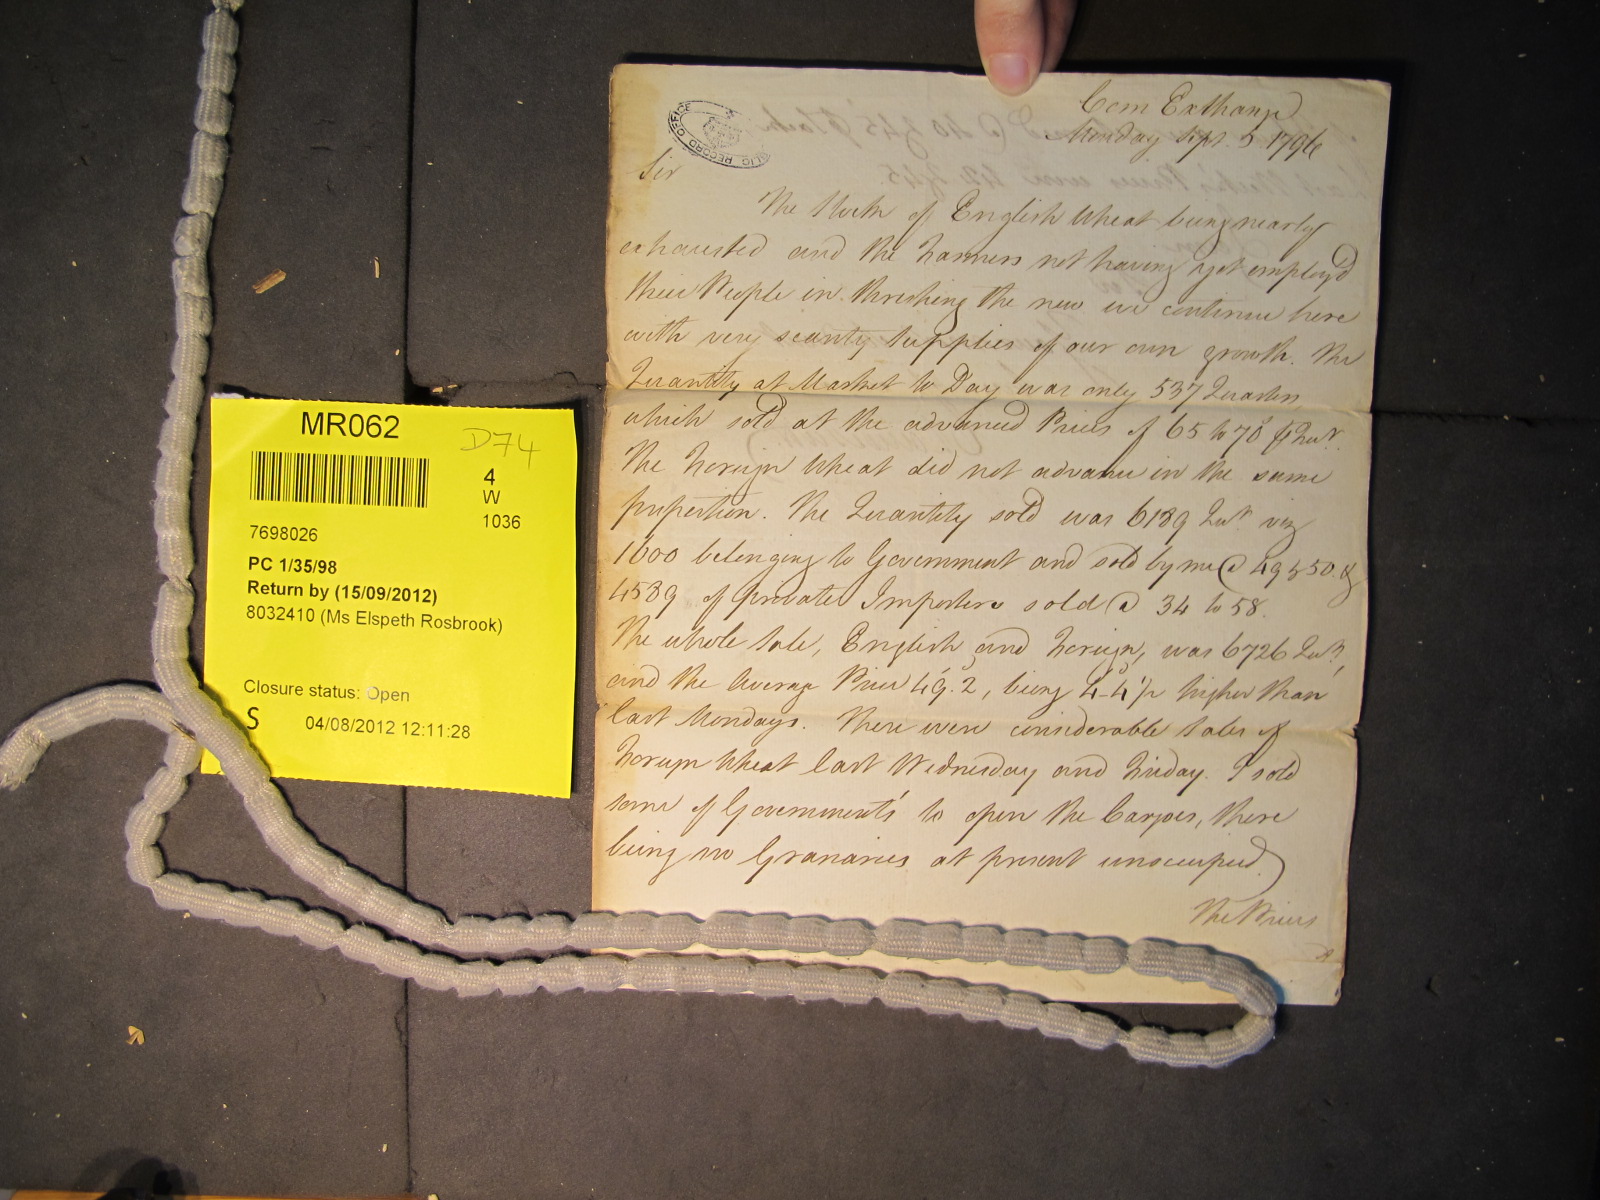 Corn Exchange
Monday Sept. 5 1796
PUBLIC RECORD OFFICE
Sir
The Stock of English Wheat being nearly
exhausted and the Farmers not having yet employ'd
their People in threshing the new we continue here
with very scanty Supplies of our own growth. The
Quantity at Market to Day was only 537 Quarters
which sold at the advanced Prices of 65 to 70s ℔ Qur.
The Foreign Wheat did not advance in the same
proportion. The Quantity sold was 6189 Qurs viz
1600 belonging to Government and sold by me @ 49 & 50. &
4589 of private Importers sold @ 34 to 58.
The whole Sale, English and Foreign, was 6726 Qurs,
and the Average Price 49s.2, being 4s.4d ½ higher than
last Mondays. There were considerable Sales of
Foreign Wheat last Wednesday and Friday. I sold
some of Government's to open the Cargoes, there
being no Granaries at present unoccupied.
The Prices
MR062
D74
4
W
1036
7698026
PC 1/35/98
Return by (15/09/2012)
8032410 (Ms Elspeth Rosbrook)
Closure status: Open
S 04/08/2012 12:11:28